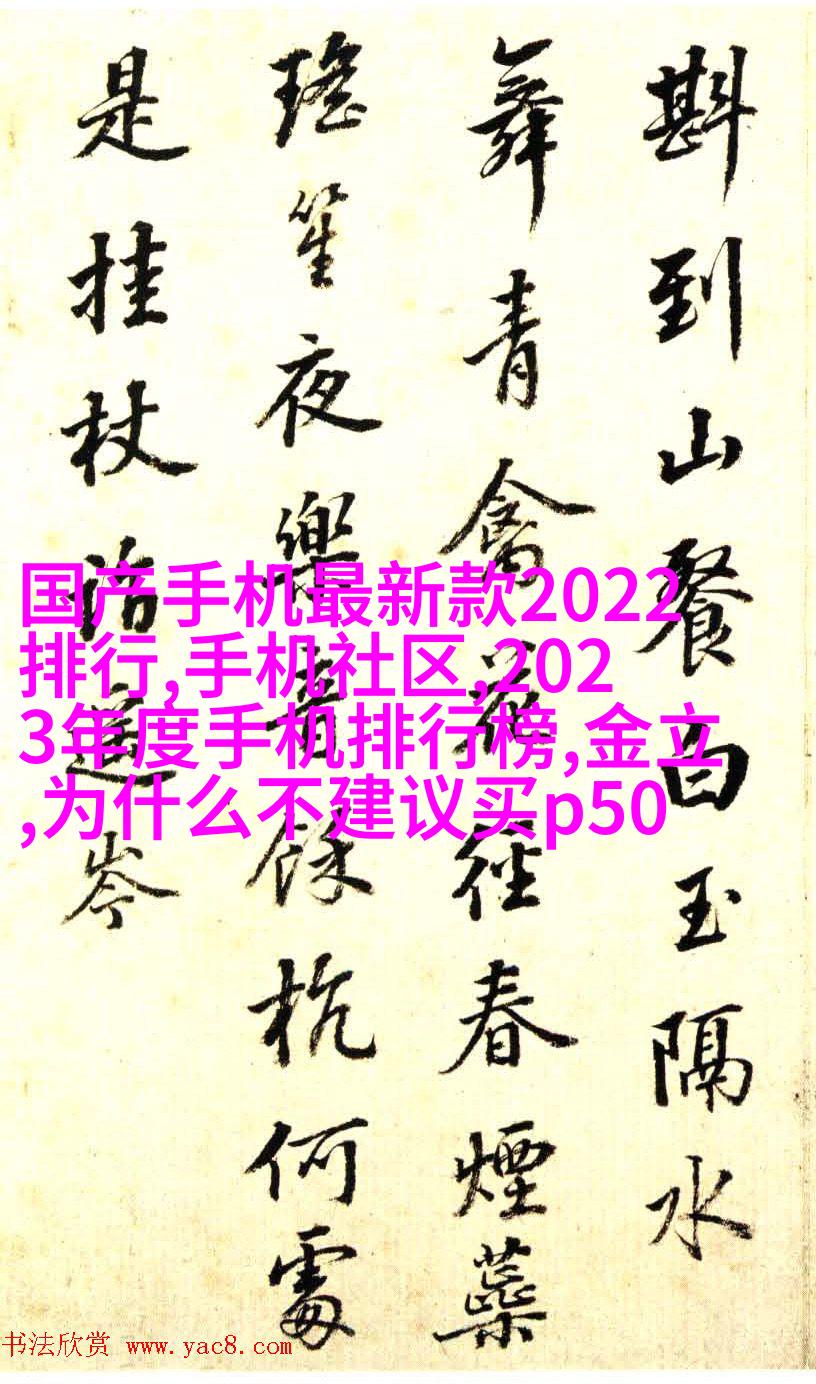 斟到山餐白玉隔水
舞青禽花径春煙蘂
瑤笙夜樂青餘杭何處
是挂杖倍遥岑
国产手机最新款2022
排行,手机社区,202
3年度手机排行榜,金立
,为什么不建议买p50
书法欣赏 www.yac8.com